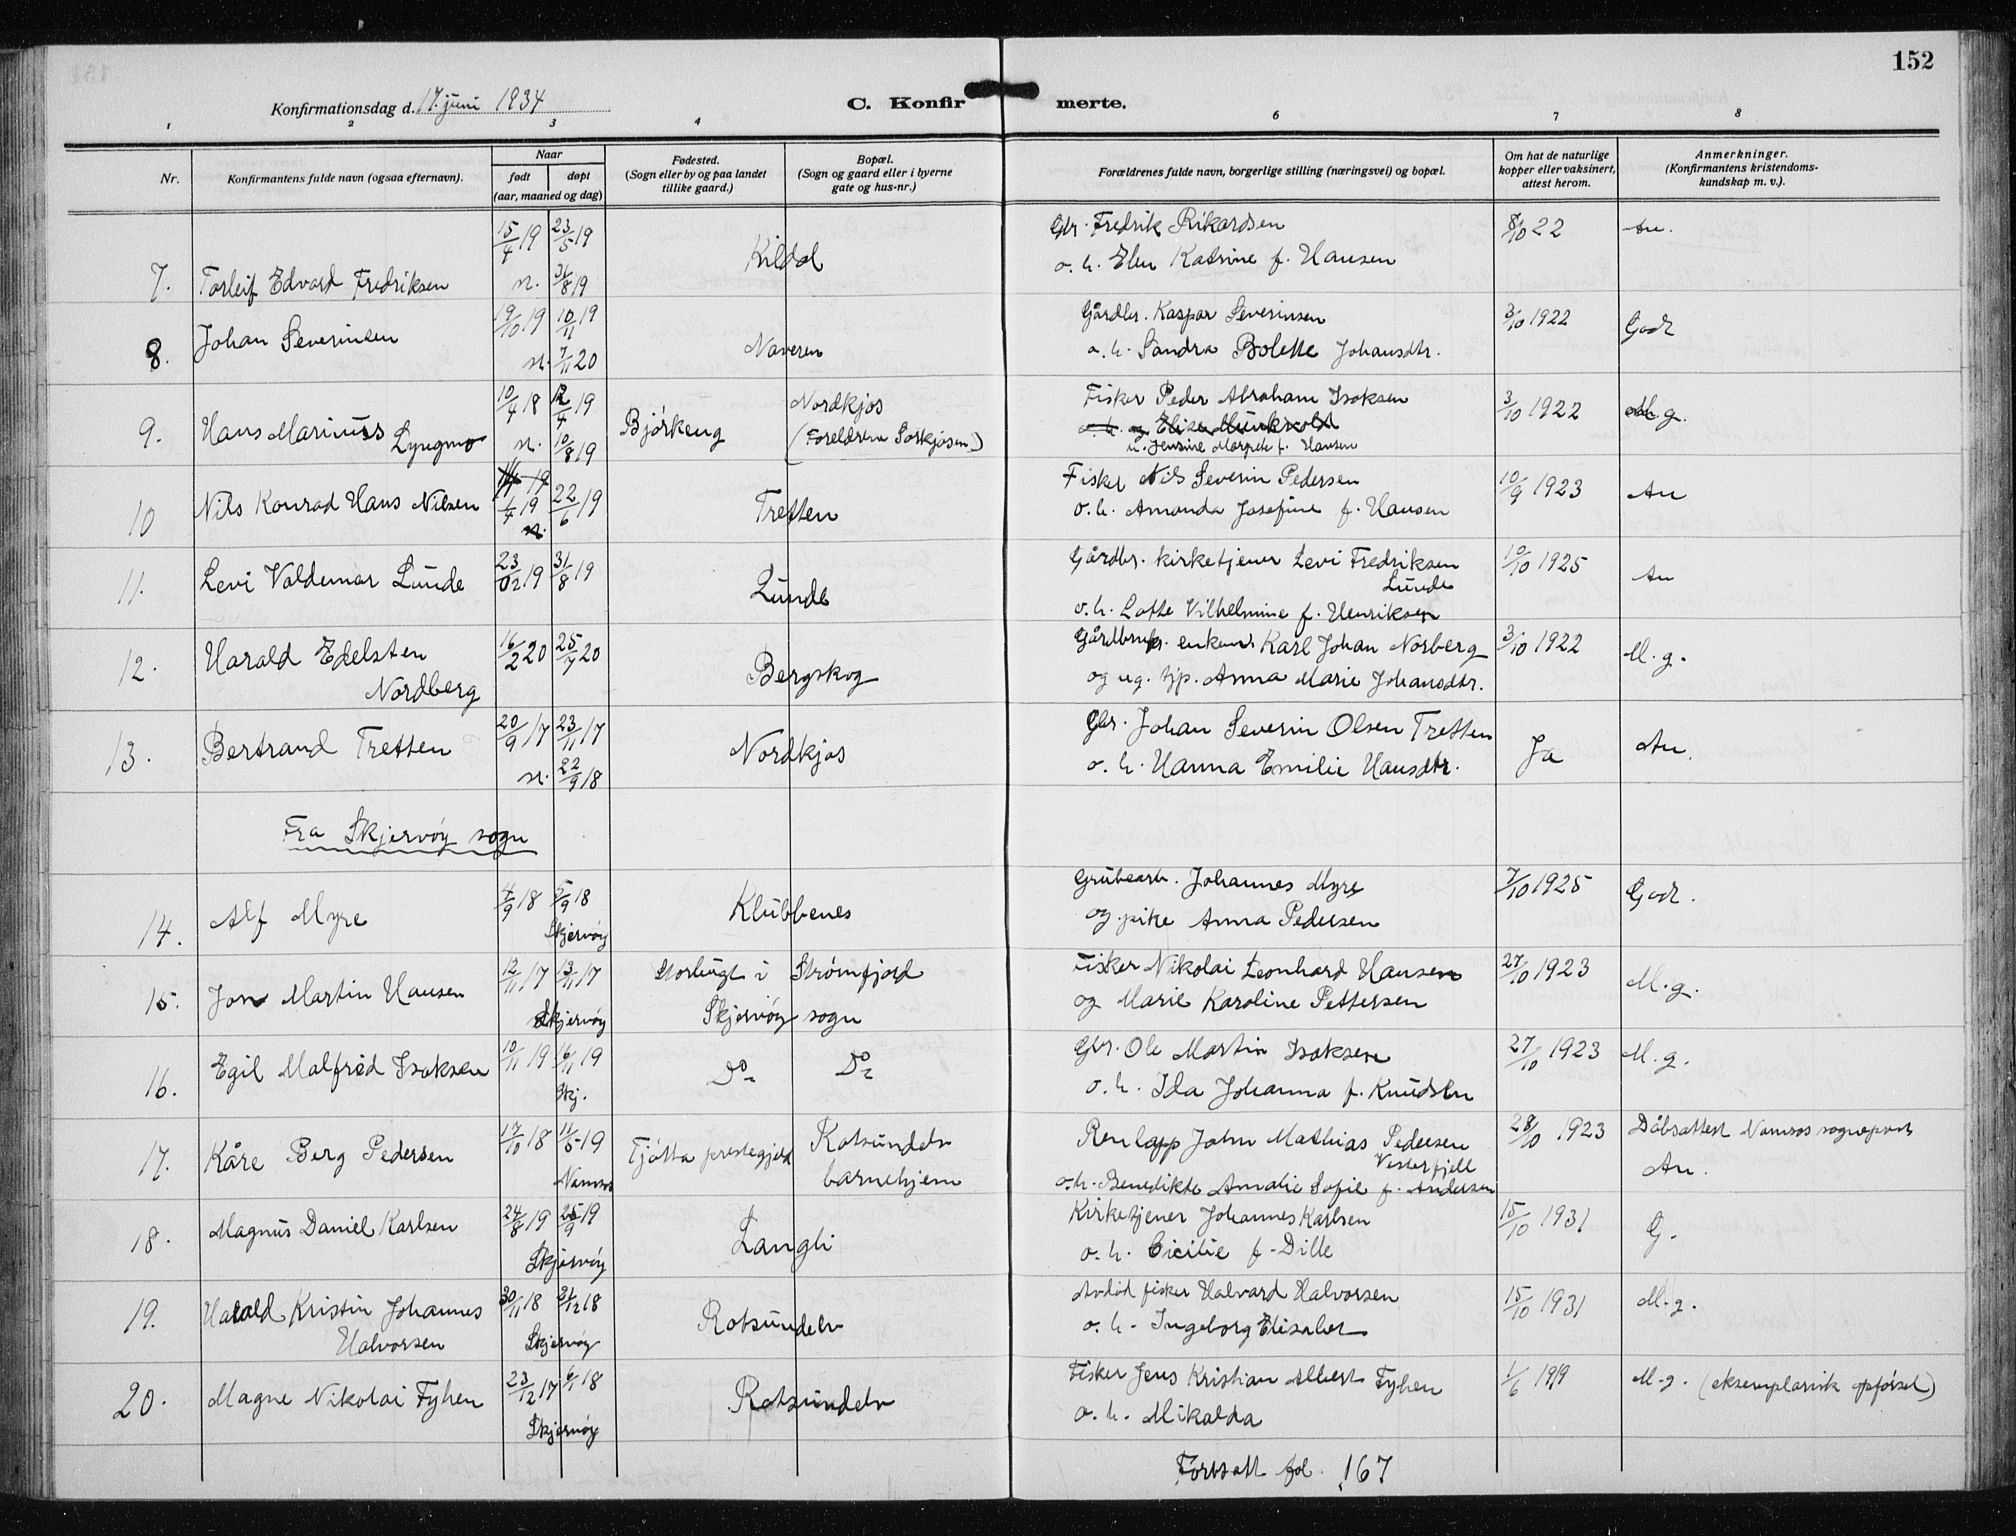 152
Konfirmationsdag d. 17. juni 1934
C. Konfirmerte.
1 2 3 4 6 7 8
Nr.
Konfirmantens fulde navn (ogsaa efternavn).
Naar
født døpt
(aar, maaned og dag)
Fødested.
(Sogn eller by og paa landet
tillike gaard.)
Bopæl.
(Sogn og gaard eller i byerne
gate og hus-nr.)
Forældrenes fulde navn, borgerlige stilling (næringsvei) og bopæl.
Om hat de naturlige
kopper eller vaksinert,
attest herom.
Anmerkninger.
(Konfirmantens kristendoms-
kundskap m. v.).
7. Torleif Edvard Fredriksen 15/4 19 23/5 19 n. 31/8 19 Kildal
Gbr. Fredrik Rikardsen 8/10 22 An.
o. h. Elen Katrine f. Hansen
8. Johan Severinsen 19/10 19 10/11 19 n. 7/11 20 Naveren
Gårdbr. Kaspar Severinsen 3/10 1922 Godt
o. h. Sandra Bolette Johansdtr.
9. Hans Marinius Lyngmo 10/4 18 12/4 19 n. 10/8 19 Bjørkeng Nordkjos
(Foreldrene Sørkjosen)
Fisker Peder Abraham Isaksen 3/10 1922 M.g.
o. h. og Elise Munkvold
u. Jensine Margrete f. Hansen
10 Nils Konrad Hans Nilsen 1/4 19 22/6 19 n. Tretten
Fisker Nils Severin Pedersen 10/9 1923 An
o. h. Amanda Josefine f. Hansen
11. Levi Valdemar Lunde 23/02 19 31/8 19 Lunde
Gårdbr. kirketjener Levi Fredriksen 10/10 1925 An
Lunde
o. h. Lotte Vilhelmine f. Henriksen
12. Harald Edelsten 16/2 20 25/7 20 Bergskog
Nordberg
Gårdbruk. enkem. Karl Johan Norberg 3/10 1922 M.g.
og ug. tjp. Anna Marie Johansdtr.
13. Bertrand Tretten 20/9 17 23/11 17 n. 22/9 18 Nordkjos
Gbr. Johan Severin Olsen Tretten Ja An.
o. h. Hanna Emilie Hansdtr.
Fra Skjervøy sogn
14. Alf Myre 4/9 18 5/9 18 Skjervøy Klubbenes
Grubearb. Johannes Myre 7/10 1925 Godt.
og pike Anna Pedersen
15. Jon Martin Hansen 12/11 17 13/11 17 Skjervøy Storbugt i Strømfjord
Skjervøy sogn
Fisker Nikolai Leonhard Hansen 27/10 1923 M.g.
og Marie Karoline Pettersen
16. Egil Malfred Isaksen 10/11 19 16/11 19 Skj. Do Do
Gbr. Ole Martin Isaksen 27/10 1923 M.g.
o. h. Ida Johanna f. Knudsen
17. Kåre Berg Pedersen 17/10 18 11/5 19 Namsos Tjøtta prestegjeld Rotsundelv
barnehjem
Renlapp John Mathias Pedersen 28/10 1923 Dåbsattest Namsos sogneprest
Vesterfjell An.
o. h. Benedikte Amalie Sofie f. Andersen
18. Magnus Daniel Karlsen 24/8 19 25/9 19 Skjervøy Langli
Kirketjener Johannes Karlsen 15/10 1931 G.
o. h. Cicilie f. Dille
19. Harald Kristin Johannes 30/11 18 31/12 18 Skjervøy Rotsundelv
Halvorsen
Avdød fisker Halvard Halvorsen 15/10 1931 M.g.
o. h. Ingeborg Elisabet
20. Magne Nikolai Fyhen 23/12 17 6/1 18 Skjervøy Rotsundelv
Fisker Jens Kristian Albert Fyhen 1/6 1919 M.g. (eksemplarisk opførsel)
o. h. Mikalda
Fortsatt fol. 167